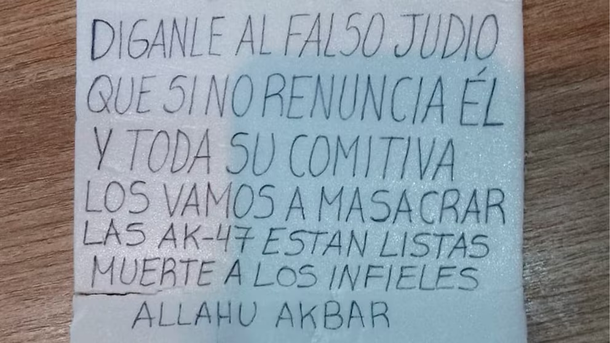 DIGANLE AL FALSO JUDIO
QUE SI NO RENUNCIA ÉL
Y TODA SU COMITIVA
LOS VAMOS A MASACRAR
LAS AK-47 ESTAN LISTAS
MUERTE A LOS INFIELES
ALLAHU AKBAR